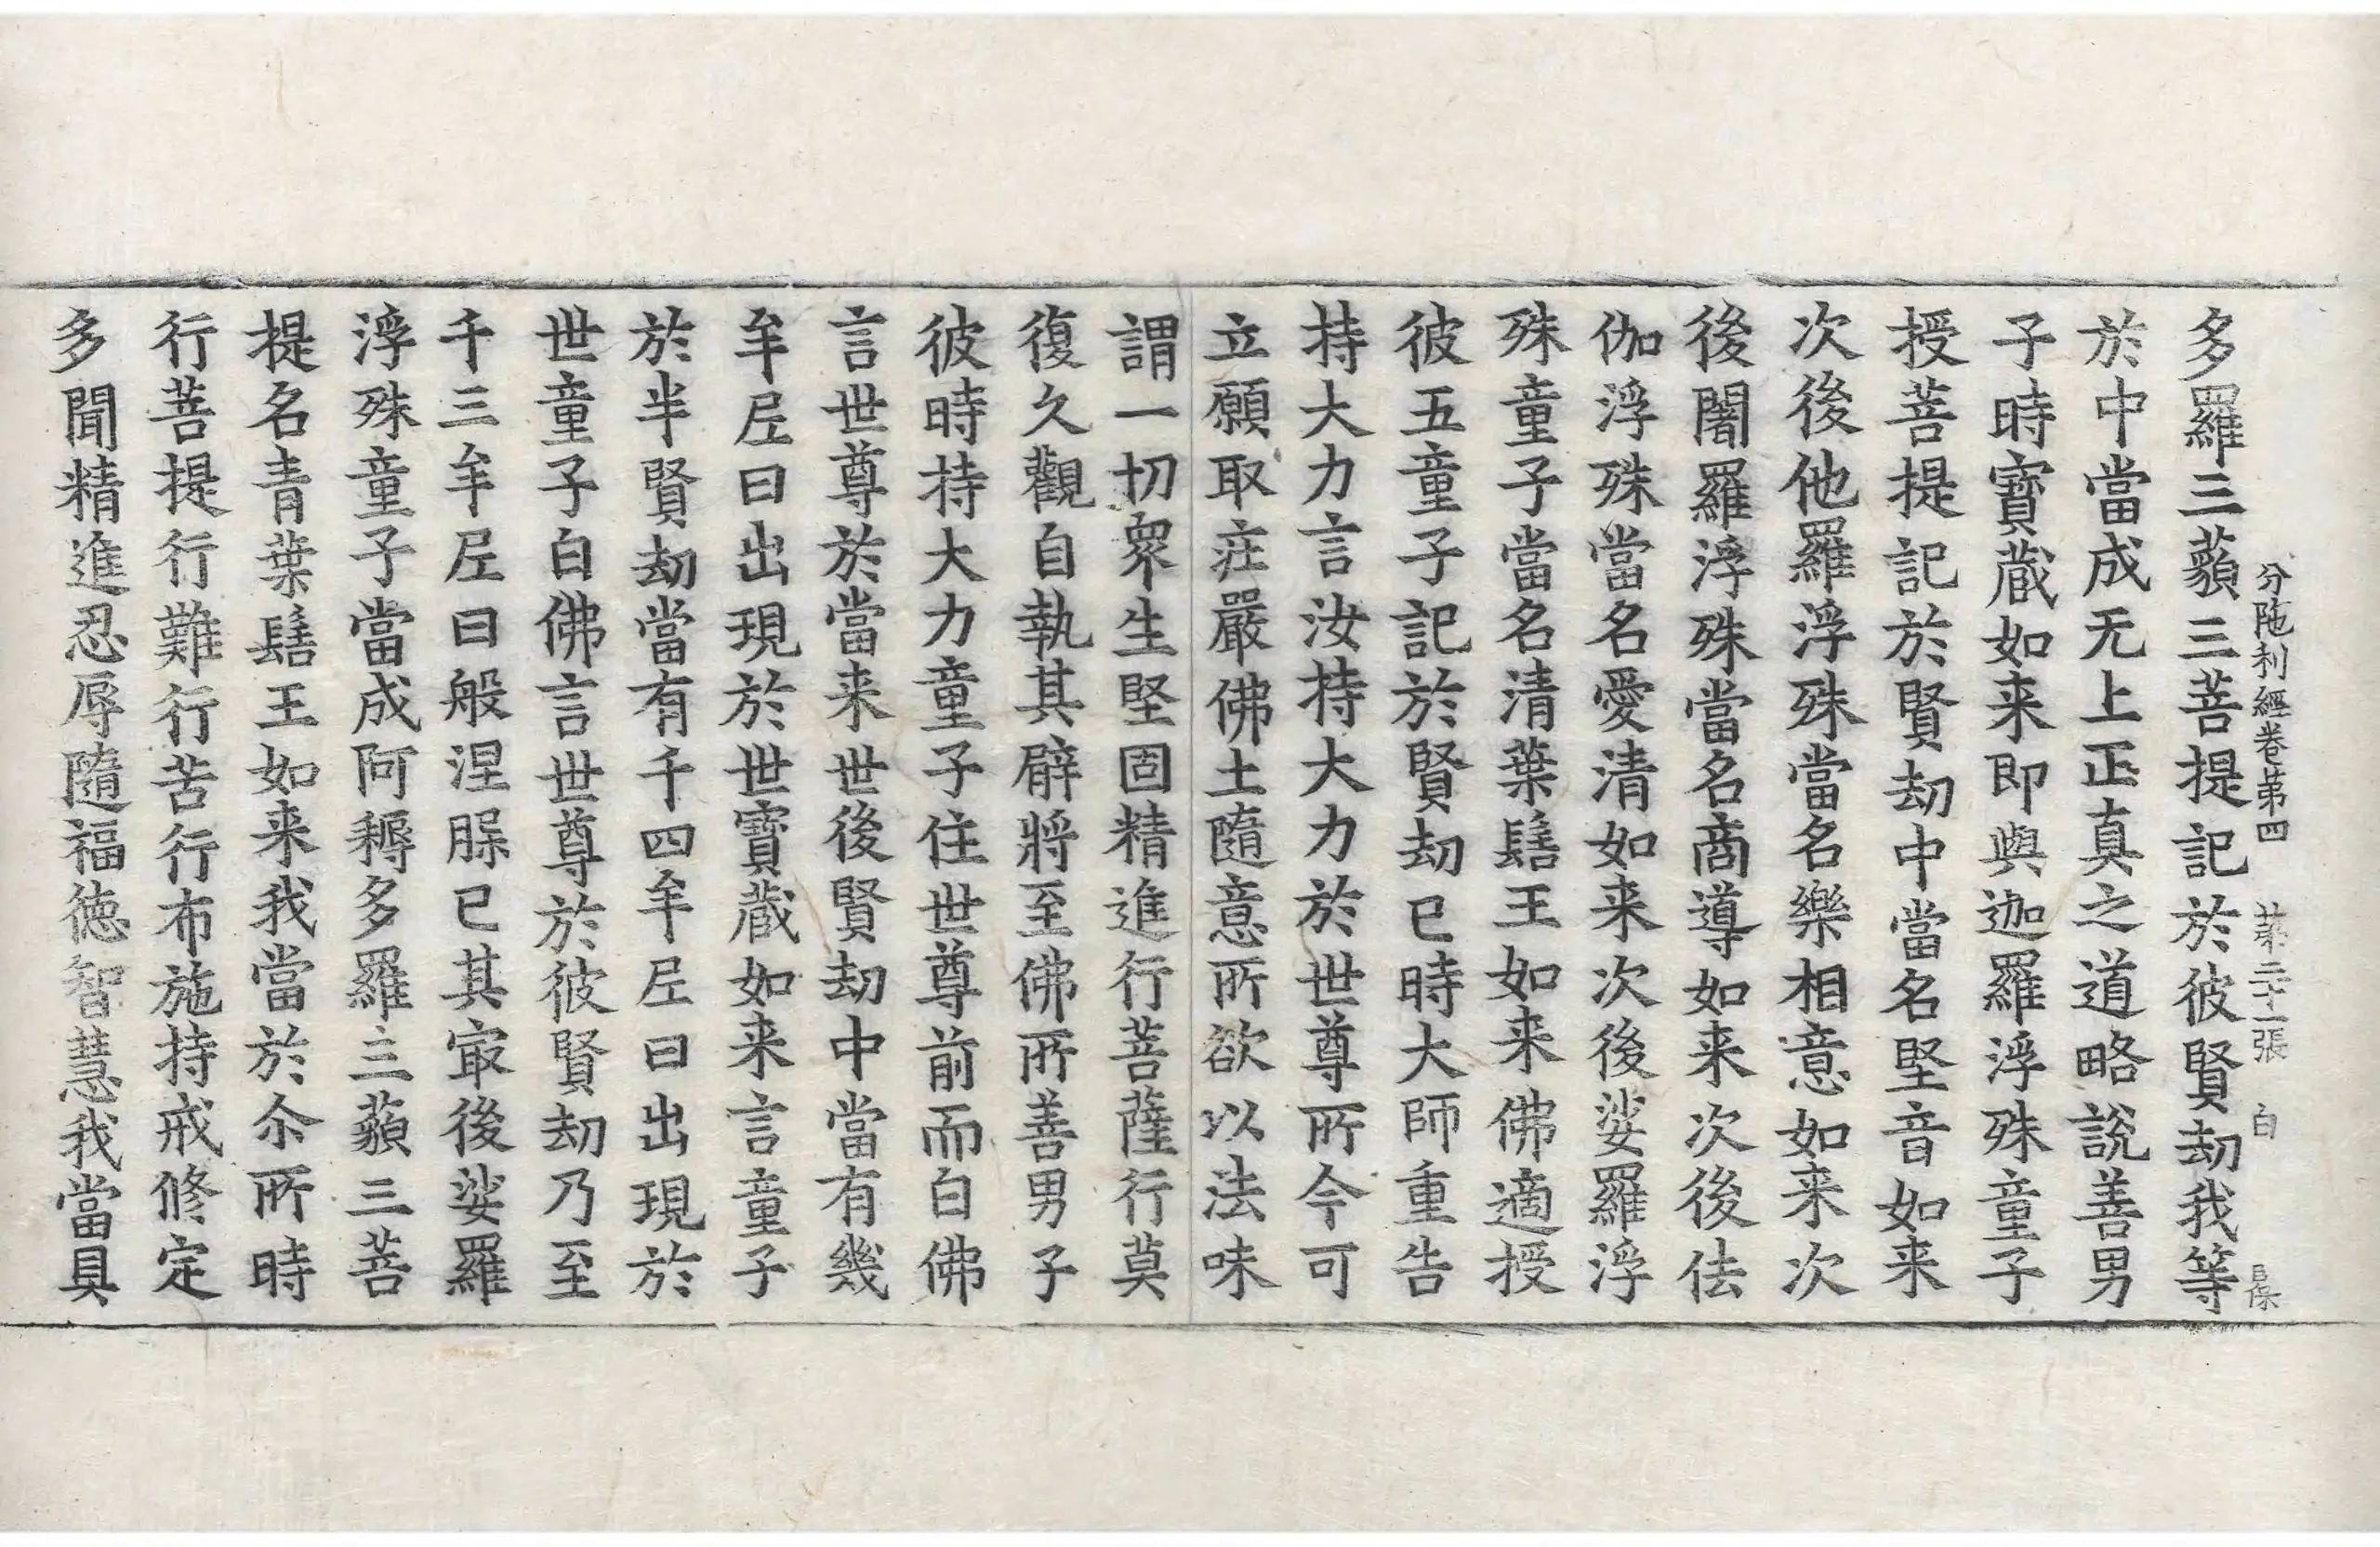 分陁利經卷第四 第二十一張 白
多羅三藐三菩提記於彼賢劫我等
於中當成无上正真之道略說善男
子時寶蔵如来即與迦羅浮殊童子
授菩提記於賢劫中當名堅音如来
次後他羅浮殊當名樂相意如来次
後闍羅浮殊當名商導如来次後佉
伽浮殊當名愛清如来次後娑羅浮
殊童子當名清葉髻王如来佛適授
彼五童子記於賢劫已時大師重告
持大力言汝持大力於世尊所今可
立願取庄嚴佛土隨意所欲以法味
謂一切衆生堅固精進行菩薩行莫
復久觀自執其臂將至佛所善男子
彼時持大力童子住世尊前而白佛
言世尊於當来世後賢劫中當有幾
牟𡰱曰出現於世寶蔵如来言童子
於半賢劫當有千四牟𡰱曰出現於
世童子白佛言世尊於彼賢劫乃至
千三牟𡰱曰般涅腂已其㝡後娑羅
浮殊童子當成阿耨多羅三藐三菩
提名青葉髻王如来我當於尒所時
行菩提行難行苦行布施持戒修定
多聞精進忍辱隨福徳智慧我當具